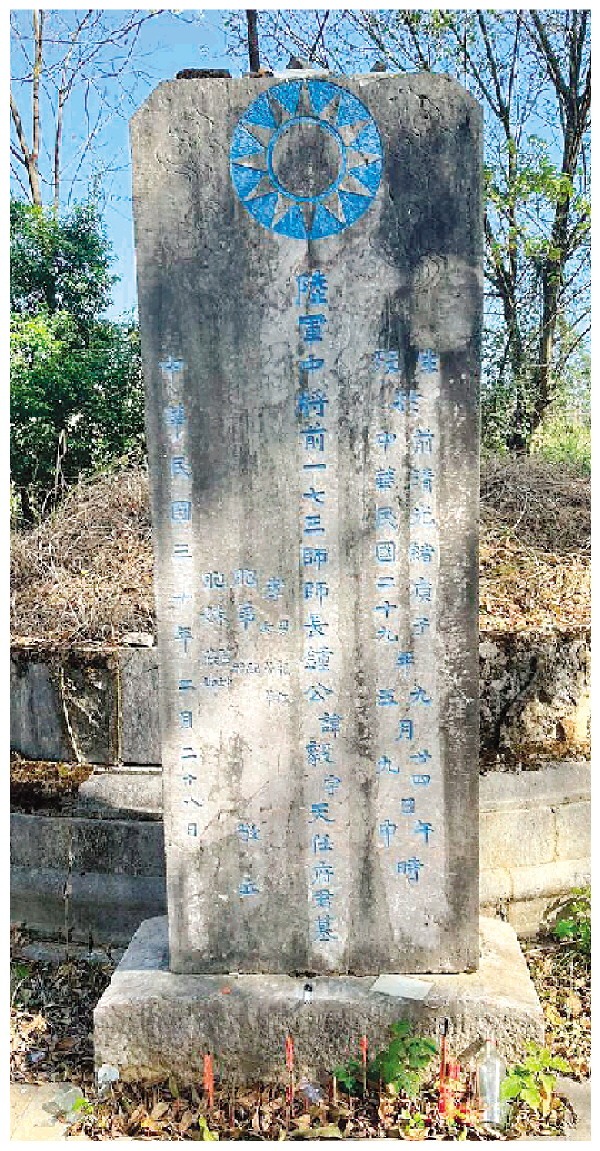 生於前清光緒庚子年九月廿四日午時
歿於中華民國二十九五九申
陸軍中將前一七三師師長鍾公諱毅字天任府君墓
孝男
胞弟
胞妹
敬立
中華民國三十年二月二十八日